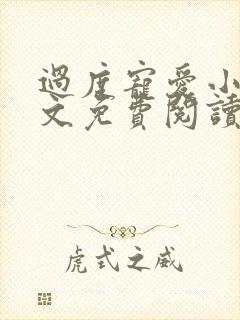 過度寵愛小
文免費閱讀
虎式之威